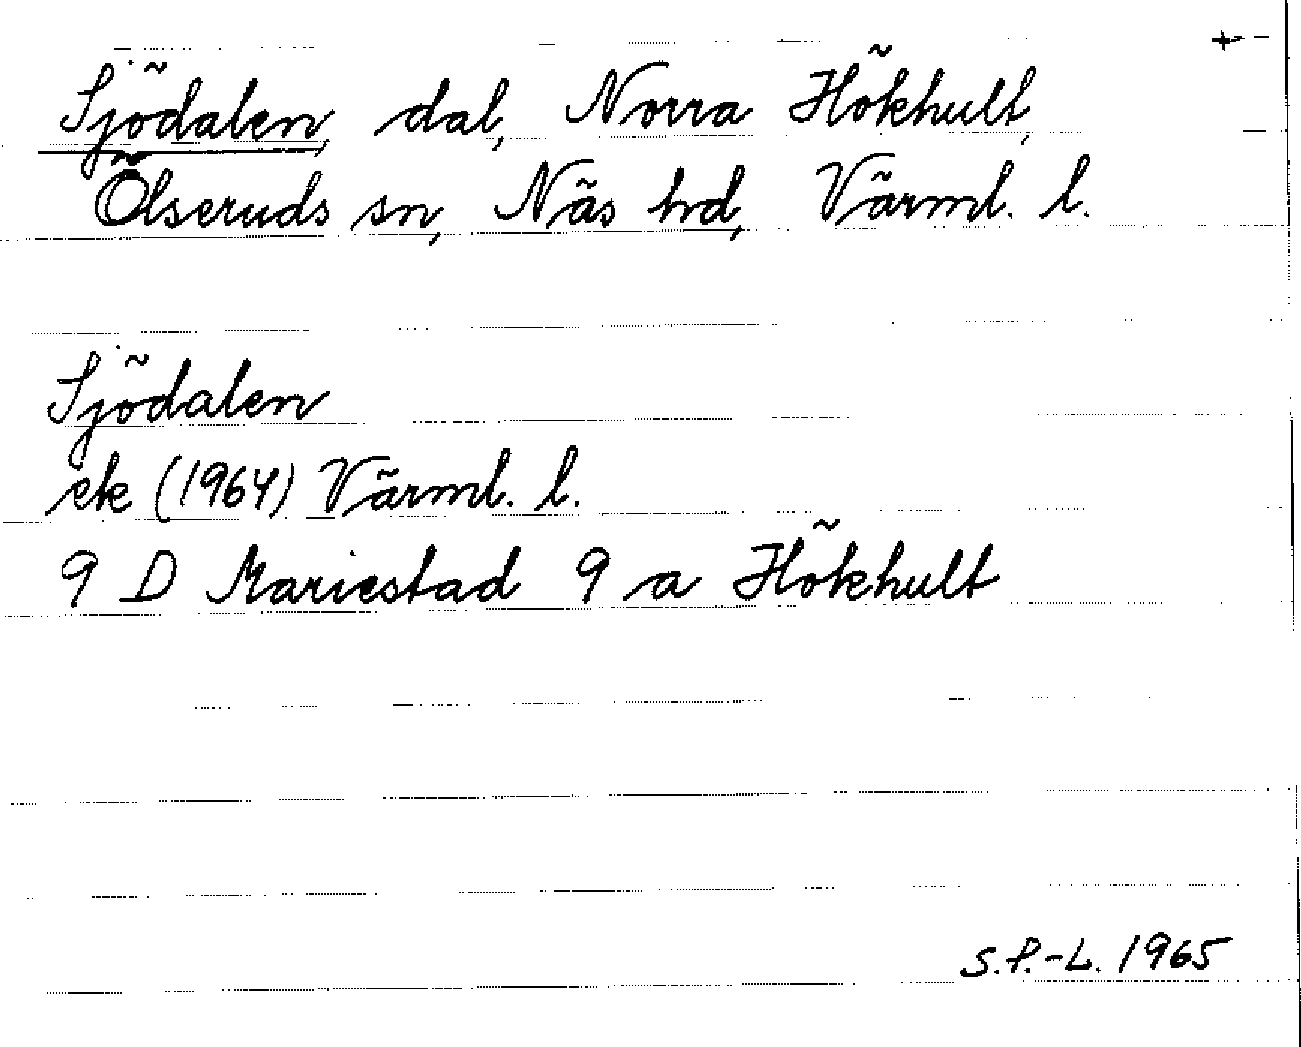 +-
Sjödalen, dal, Norra Hökhult,
Ölseruds sn, Näs hd, Värml. l.
Sjödalen
ek (1964) Värml. l.
9 D Mariestad 9 a Hökhult
S.P.-L. 1965